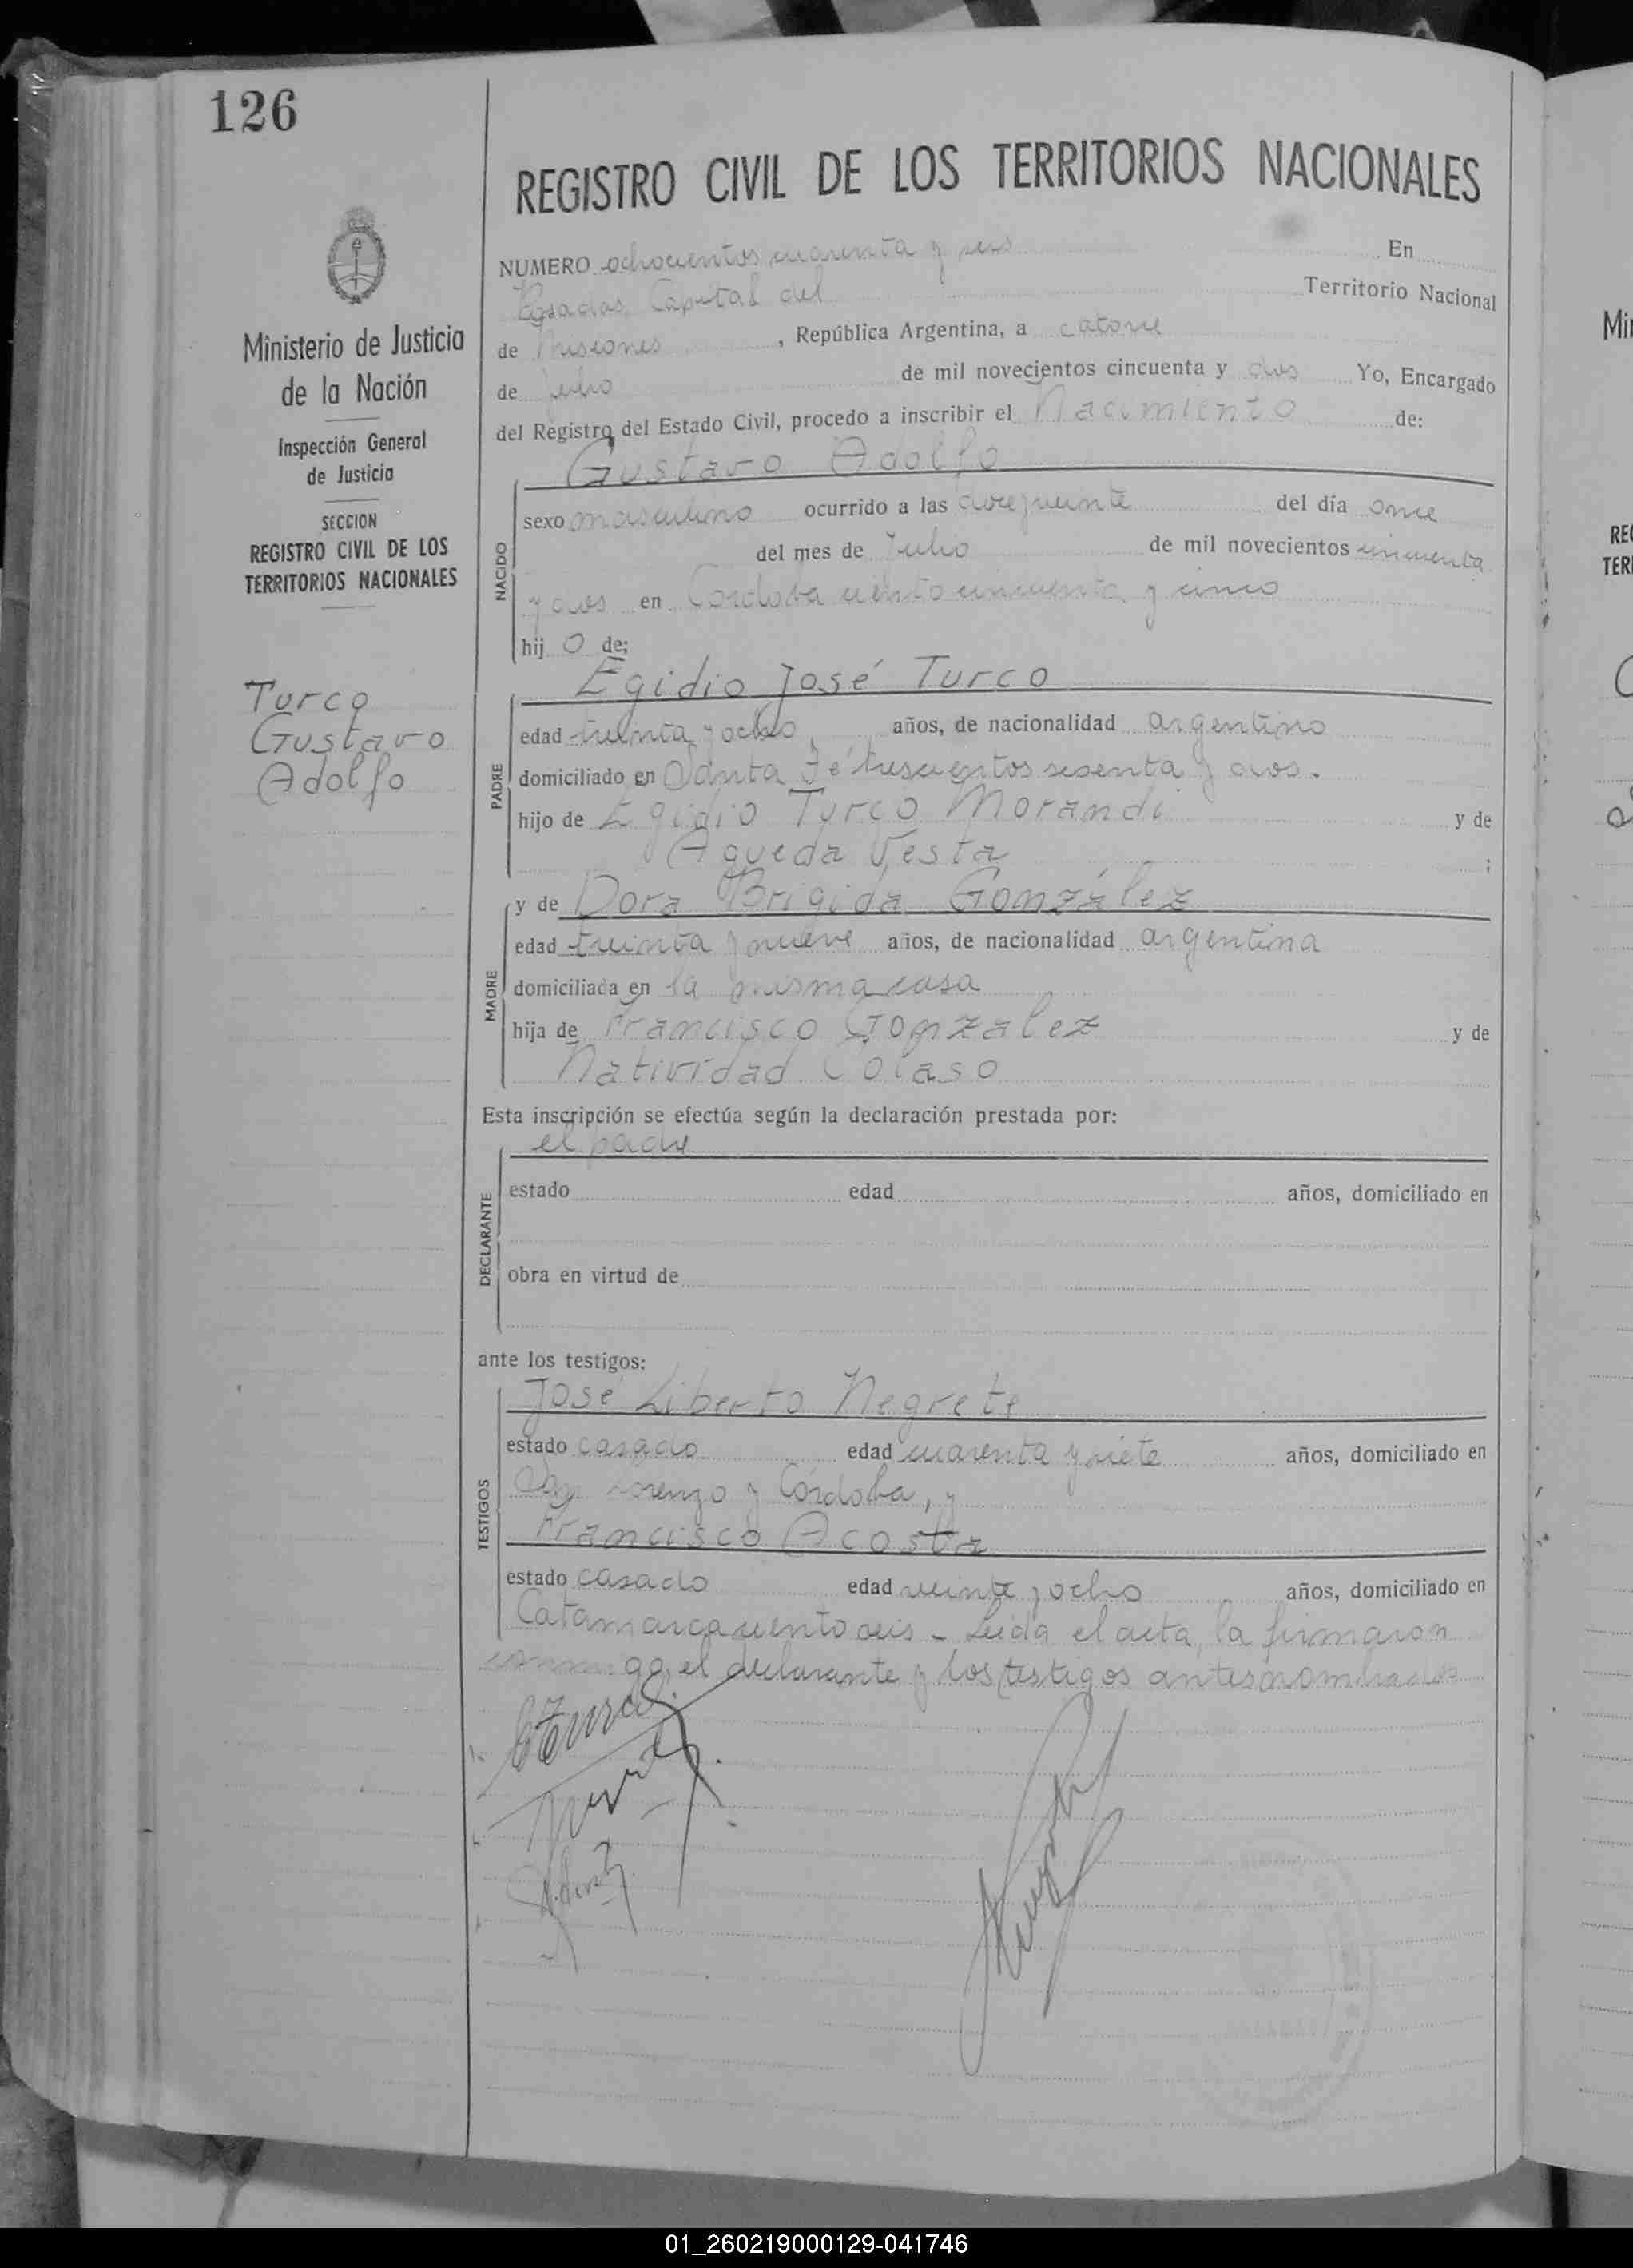 126
REGISTRO CIVIL DE LOS TERRITORIOS NACIONALES
Ministerio de Justicia
de la Nación
Inspección General
de Justicia
SECCION
REGISTRO CIVIL DE LOS
TERRITORIOS NACIONALES
Turco
Gustavo
Adolfo
NUMERO ochocientos cuarenta y seis En
Posadas, Capital del Territorio Nacional
de Misiones, República Argentina, a catorce
de julio de mil novecientos cincuenta y dos Yo, Encargado
del Registro del Estado Civil, procedo a inscribir el Nacimiento de:
Gustavo Adolfo
NACIDO
sexo masculino ocurrido a las doce y veinte del día once
del mes de Julio de mil novecientos cincuenta
y dos en Cordoba ciento cincuenta y cinco
hij o de;
Egidio José Turco
PADRE
edad treinta y ocho años, de nacionalidad argentino
domiciliado en Santa Fé trescientos sesenta y dos.
hijo de Egidio Turco Morandi y de
Agueda Testa ;
y de Dora Brigida González
MADRE
edad treinta y nueve años, de nacionalidad argentina
domiciliada en la misma casa
hija de Francisco Gonzalez y de
Natividad Colaso
Esta inscripción se efectúa según la declaración prestada por:
el padre
DECLARANTE
estado edad años, domiciliado en
obra en virtud de
ante los testigos:
José Liberto Negrete
TESTIGOS
estado casado edad cuarenta y siete años, domiciliado en
San Lorenzo y Córdoba, y
Francisco Acosta
estado casado edad veinte y ocho años, domiciliado en
Catamarca ciento seis - Leida el acta, la firmaron
conmigo, el declarante y los testigos antes nombrados
01_260219000129-041746